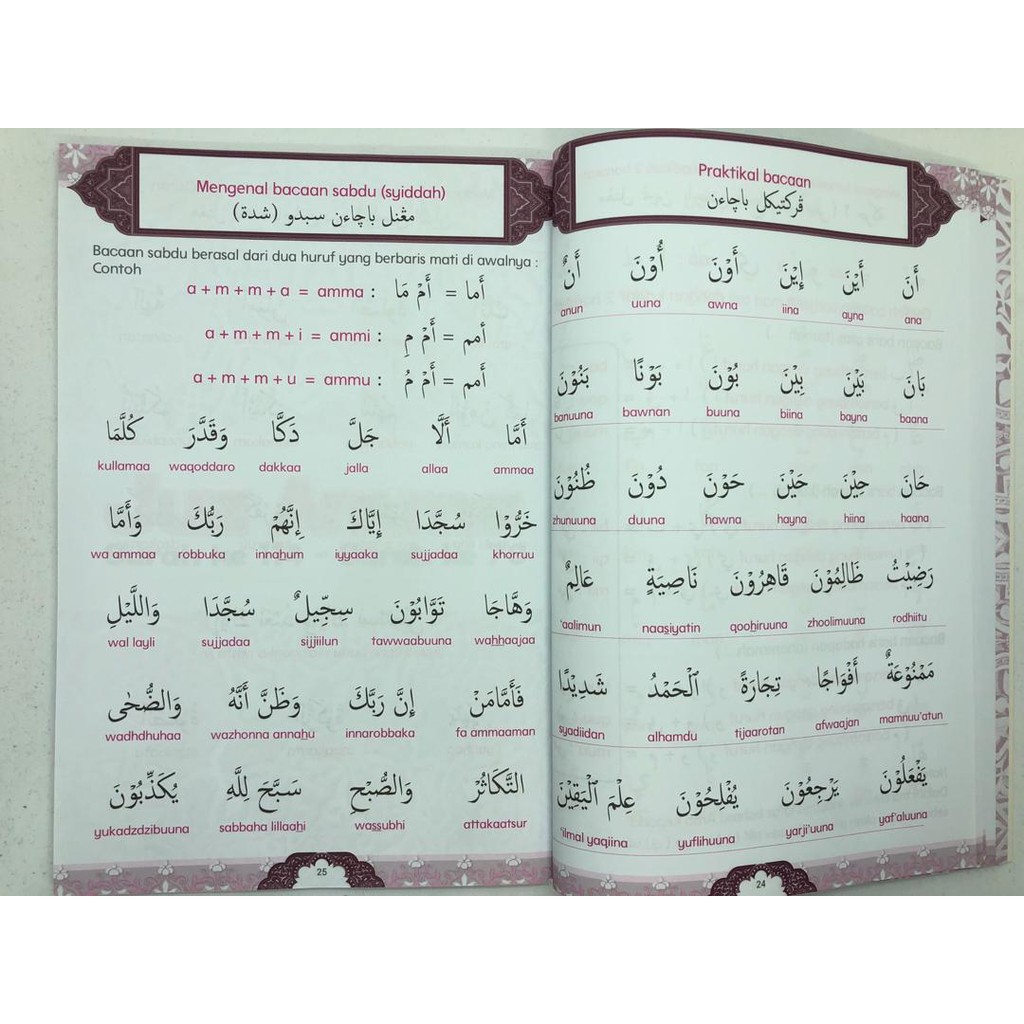 Praktikal bacaan
ڤرکتيکل باچاءن
أَنَ أَيْنَ إِيْنَ أَوْنَ أُوْنَ أَنٌ
anun uuna awna iina ayna ana
بَانَ بَيْنَ بِيْنَ بُوْنَ بَوْنًا بَنُوْنَ
banuuna bawnan buuna biina bayna baana
حَانَ حِيْنَ حَيْنَ حَوْنَ دُوْنَ ظُنُوْنَ
zhunuuna duuna hawna hayna hiina haana
رَضِيْتُ ظَالِمُوْنَ قَاهِرُوْنَ نَاصِيَةٍ عَالِمٌ
'aalimun naasiyatin qoohiruuna zhoolimuuna rodhiitu
مَمْنُوْعَةٌ أَفْوَاجًا تِجَارَةً اَلْحَمْدُ شَدِيْدًا
syadiidan alhamdu tijaarotan afwaajan mamnuu'atun
يَفْعَلُوْنَ يَرْجِعُوْنَ يُفْلِحُوْنَ عِلْمَ الْيَقِيْنَ
'ilmal yaqiina yuflihuuna yarji'uuna yaf'aluuna
24
Mengenal bacaan sabdu (syiddah)
مڠنل باچاءن سبدو (شدة)
Bacaan sabdu berasal dari dua huruf yang berbaris mati di awalnya :
Contoh
a + m + m + a = amma : أَمْ مَا = أَما
a + m + m + i = ammi : أَمْ مِ = أمم
a + m + m + u = ammu : أَمْ مُ = أَمم
أَمَّا أَلَّا جَلَّ دَكَّا وَقَدَّرَ كُلَّمَا
kullamaa waqoddaro dakkaa jalla allaa ammaa
خَرُّوْا سُجَّدَا إِيَّاكَ إِنَّهُمْ رَبُّكَ وَأَمَّا
wa ammaa robbuka innahum iyyaaka sujjadaa khorruu
وَهَّاجَا تَوَّابُوْنَ سِجِّيلٌ سُجَّدَا وَاللَّيْلِ
wal layli sujjadaa sijjiilun tawwaabuuna wahhaajaa
فَأَمَّامَنْ إِنَّ رَبَّكَ وَظَنَّ أَنَّهُ وَالضُّحٰى
wadhdhuhaa wazhonna annahu innarobbaka fa ammaaman
التَّكَاثُرْ وَالصُّبْحِ سَبَّحَ لِلَّهِ يُكَذِّبُوْنَ
yukadzdzibuuna sabbaha lillaahi wassubhi attakaatsur
25